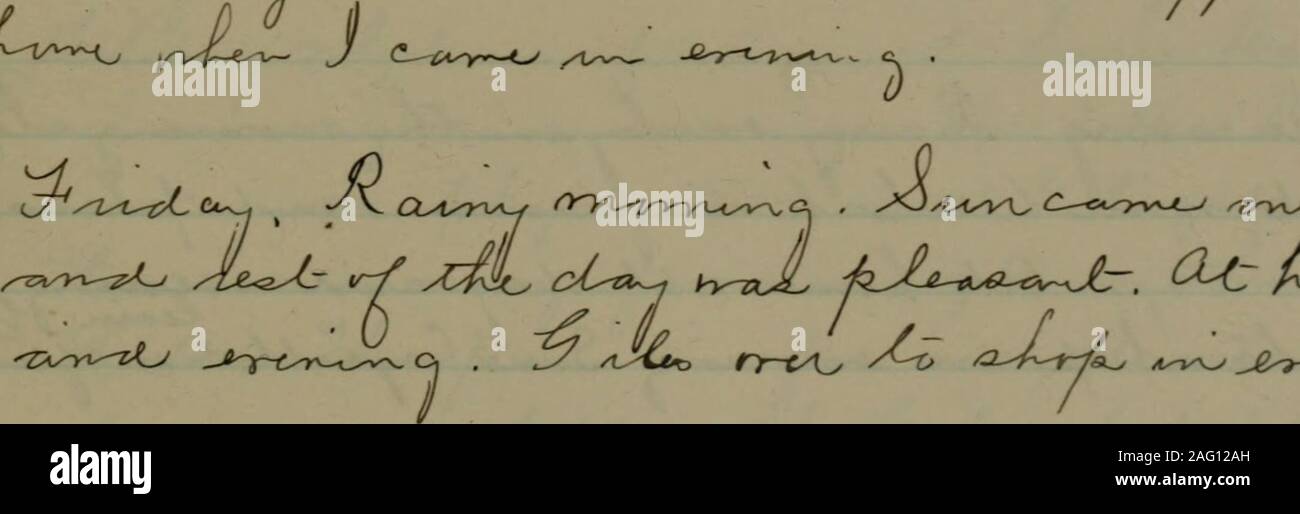 when I came in evening.
Friday. Rainy morning. Sun came
and rest of the day was pleasant. At
and evening. Giles over to shop in
alamy
alamy
a a a
a a a
a a a
alamy
Image ID: 2AG12AH
www.alamy.com